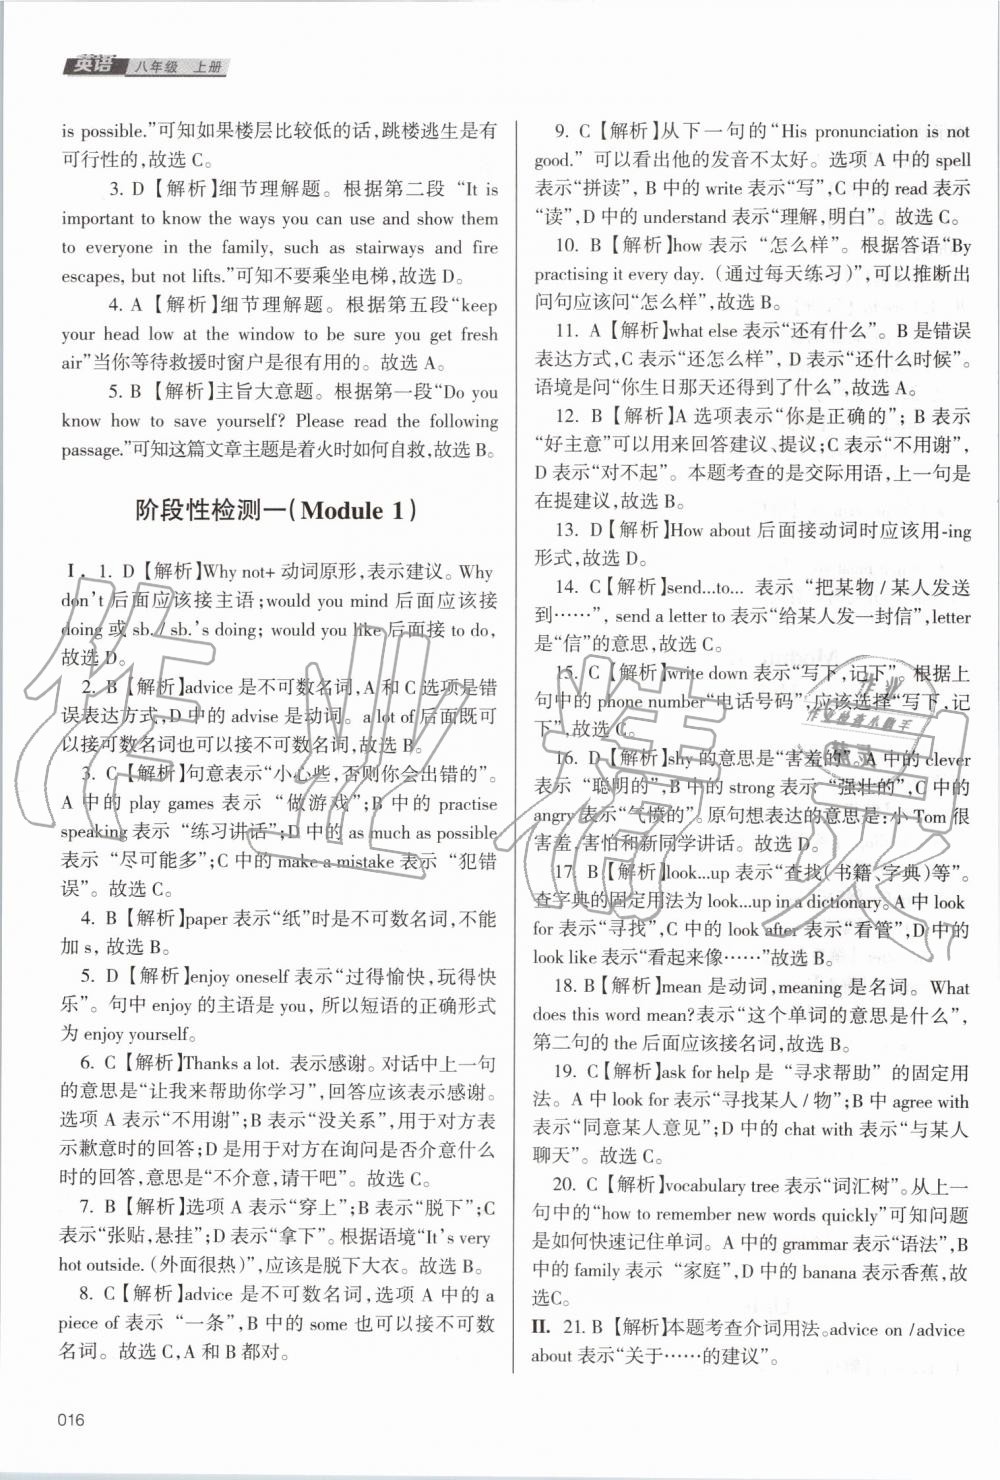 英语 八年级 上册
is possible.”可知如果楼层比较低的话，跳楼逃生是有
可行性的，故选 C。
3. D【解析】细节理解题。根据第二段 “It is
important to know the ways you can use and show them
to everyone in the family, such as stairways and fire
escapes, but not lifts.”可知不要乘坐电梯，故选 D。
4. A【解析】细节理解题。根据第五段“keep
your head low at the window to be sure you get fresh
air”当你等待救援时窗户是很有用的。故选 A。
5. B【解析】主旨大意题。根据第一段“Do you
know how to save yourself? Please read the following
passage.”可知这篇文章主题是着火时如何自救，故选 B。
阶段性检测一（Module 1）
Ⅰ. 1. D【解析】Why not+ 动词原形，表示建议。Why
don’t 后面应该接主语；would you mind 后面应该接
doing 或 sb. / sb.’s doing；would you like 后面接 to do，
故选 D。
2. B【解析】advice 是不可数名词，A 和 C 选项是错
误表达方式，D 中的 advise 是动词。a lot of 后面既可
以接可数名词也可以接不可数名词。故选 B。
3. C【解析】句意表示“小心些，否则你会出错的”。
A 中的 play games 表示 “做游戏”；B 中的 practise
speaking 表示 “练习讲话”；D 中的 as much as possible
表示 “尽可能多”；C 中的 make a mistake 表示 “犯错
误”。故选 C。
4. B【解析】paper 表示“纸”时是不可数名词，不能
加 s，故选 B。
5. D【解析】enjoy oneself 表示“过得愉快，玩得快
乐”。句中 enjoy 的主语是 you，所以短语的正确形式
为 enjoy yourself。
6. C【解析】Thanks a lot. 表示感谢。对话中上一句
的意思是“让我来帮助你学习”，回答应该表示感谢。
选项 A 表示“不用谢”；B 表示“没关系”，用于对方表
示歉意时的回答；D 是用于对方在询问是否介意什么
时的回答，意思是“不介意，请干吧”。故选 C。
7. B【解析】选项 A 表示“穿上”；B 表示“脱下”；C
表示“张贴，悬挂”；D 表示“拿下”。根据语境“It’s very
hot outside.（外面很热）”，应该是脱下大衣。故选 B。
8. C【解析】advice 是不可数名词，选项 A 中的 a
piece of 表示 “一条”，B 中的 some 也可以接不可数
名词。故选 C，A 和 B 都对。
016
9. C【解析】从下一句的“His pronunciation is not
good.” 可以看出他的发音不太好。选项 A 中的 spell
表示“拼读”，B 中的 write 表示“写”，C 中的 read 表示
“读”，D 中的 understand 表示“理解，明白”。故选 C。
10. B【解析】how 表示 “怎么样”。根据答语“By
practising it every day.（通过每天练习）”，可以推断出
问句应该问“怎么样”，故选 B。
11. A【解析】what else 表示“还有什么”。B 是错误
表达方式，C 表示“还怎么样”，D 表示“还什么时候”。
语境是问“你生日那天还得到了什么”，故选 A。
12. B【解析】A 选项表示“你是正确的”；B 表示
“好主意”可以用来回答建议、提议；C 表示“不用谢”，
D 表示“对不起”。本题考查的是交际用语，上一句是
在提建议，故选 B。
13. D【解析】How about 后面接动词时应该用-ing
形式，故选 D。
14. C【解析】send...to... 表示 “把某物 / 某人发送
到……”，send a letter to 表示“给某人发一封信”，letter
是“信”的意思，故选 C。
15. C【解析】write down 表示“写下，记下”。根据上
句中的 phone number“电话号码”，应该选择“写下，记
下”。故选 C。
16. D【解析】shy 的意思是“害羞的”。A 中的 clever
表示 “聪明的”，B 中的 strong 表示 “强壮的”，C 中的
angry 表示“气愤的”。原句想表达的意思是：小 Tom 很
害羞，害怕和新同学讲话。故选 D。
17. B【解析】look...up 表示“查找（书籍、字典）等”。
查字典的固定用法为 look...up in a dictionary。A 中 look
for 表示“寻找”，C 中的 look after 表示“看管”，D 中的
look like 表示“看起来像……”故选 B。
18. B【解析】mean 是动词，meaning 是名词。What
does this word mean?表示“这个单词的意思是什么”，
第二句的 the 后面应该接名词，故选 B。
19. C【解析】ask for help 是 “寻求帮助” 的固定用
法。A 中 look for 表示“寻找某人 / 物”；B 中 agree with
表示“同意某人意见”；D 中的 chat with 表示“与某人
聊天”。故选 C。
20. C【解析】vocabulary tree 表示“词汇树”。从上一
句中的“how to remember new words quickly”可知问题
是如何快速记住单词。A 中的 grammar 表示“语法”，B
中的 family 表示 “家庭”，D 中的 banana 表示香蕉，故
选C。
Ⅱ. 21. B【解析】本题考查介词用法。advice on /advice
about 表示“关于……的建议”。
作业精灵